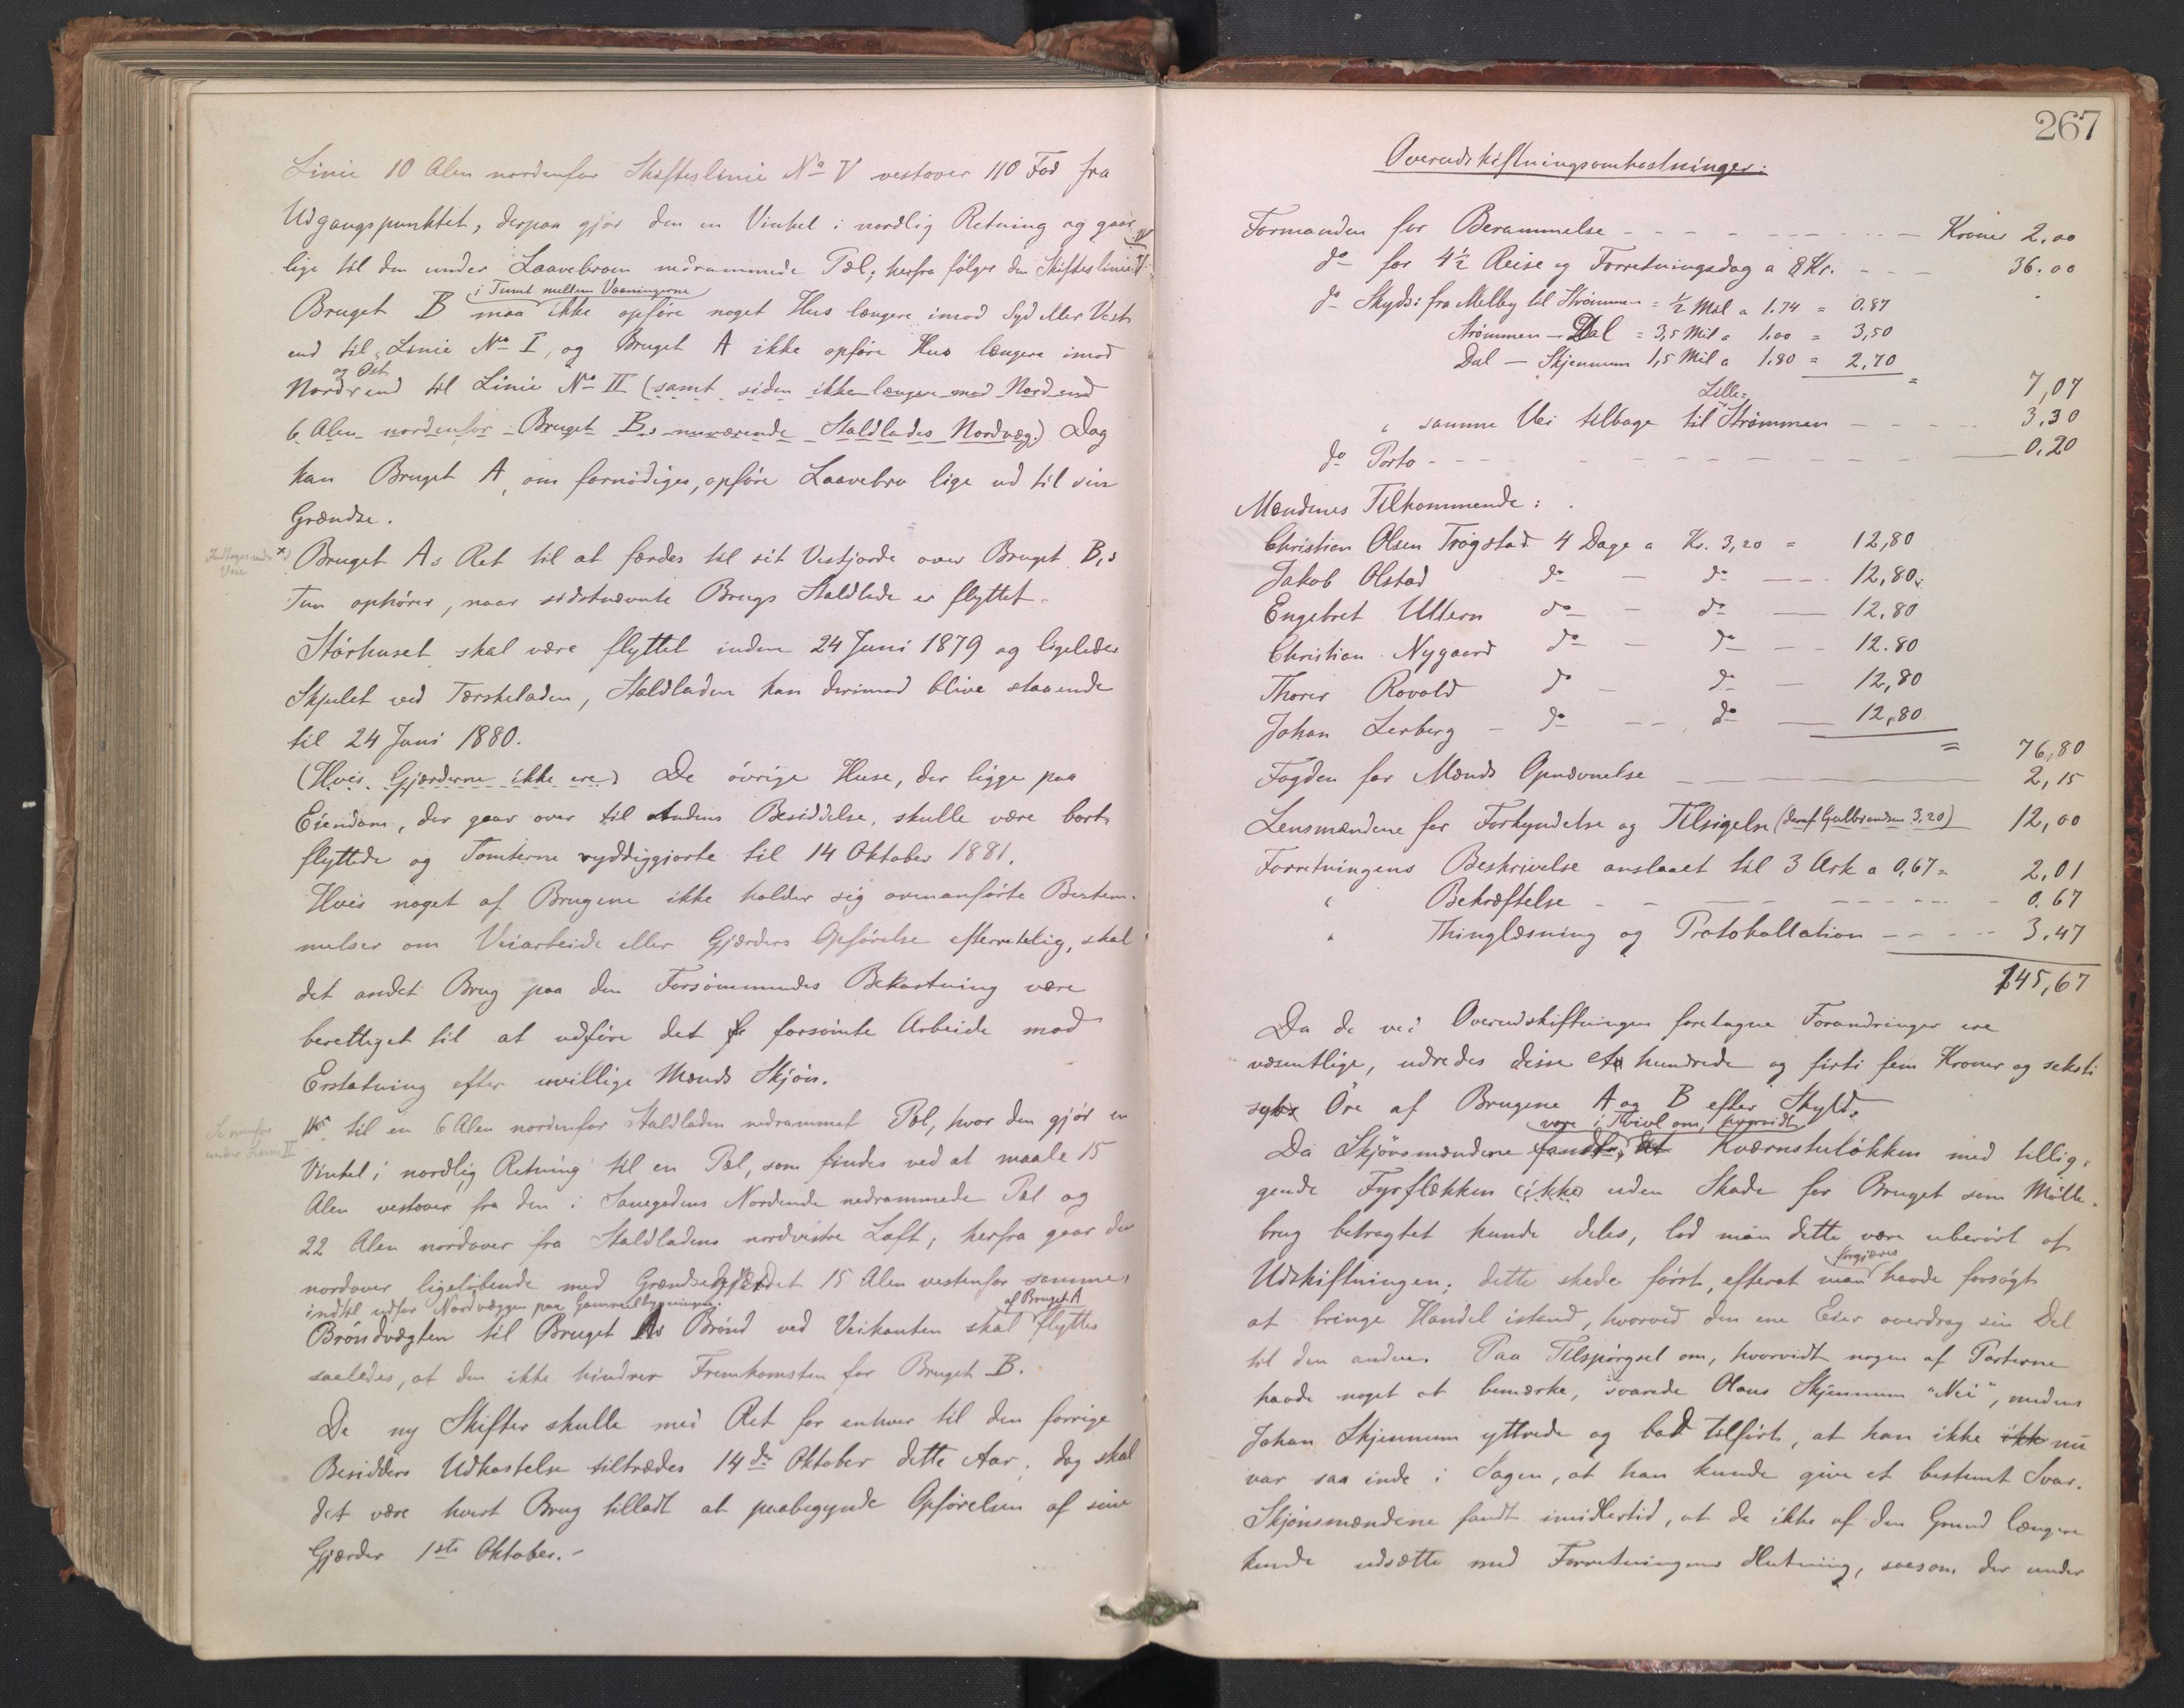 Linie 10 Alen nordenfor Skifteslinie No V vestover 110 Fod fra
Udgangspunktet, derpaa gjør den en Vinkel i nordlig Retning og gaar
lige til den under Laavebroen nedrammede Pæl; herfra følger den Skifteslinie IV
i Tunet mellem Vaaningerne
Bruget B maa ikke opføre noget Hus længere imod Syd eller Vest
end til Linie No I, og Bruget A ikke opføre Hus længere imod
og Øst
Nord end til Linie No II (samt siden ikke længere mod Nord end
6 Alen nordenfor Bruget B.s nuværende Staldlades Nordvæg.) Dog
kan Bruget A, om fornødiges, opføre Laavebro lige ud til sin
Grændse.
Indtages under Veie
x) Bruget As Ret til at færdes til sit Vestjorde over Bruget B,s
Tun ophører, naar sidstnævnte Brugs Staldlade er flyttet.
Størhuset skal være flyttet inden 24 Juni 1879 og ligeledes
Skjulet ved Tærskeladen, Staldladen kan derimod blive staaende
til 24 Juni 1880.
(Hvis Gjærderne ikke ere) De øvrige Huse, der ligge paa
Eiendom, der gaar over til Andens Besiddelse, skulle være bort-
flyttede og Tomterne ryddiggjorte til 14 Oktober 1881.
Hvis noget af Brugene ikke holder sig ovenanførte Bestem-
melser om Veiarbeide eller Gjærders Opførelse efterrettelig, skal
det andet Brug paa den Forsømmendes Bekostning være
berettiget til at udføre det fr forsømte Arbeide mod
Erstatning efter uvillige Mænds Skjøn.
Se ovenfor under Linie II
til en 6 Alen nordenfor Staldladen nedrammet Pæl, hvor den gjør en
Vinkel i nordlig Retning til en Pæl, som findes ved at maale 15
Alen vestover fra den i Haugegdens Nordende nedrammede Pæl og
22 Alen nordover fra Staldladens nordvestre Laft; herfra gaar den
nordover ligeløbende med Grændsegjærdet 15 Alen vestenfor samme,
indtil udfor Nordvæggen paa Gammelbygningen. af Bruget A
Brøndvægten til Bruget As Brønd ved Veikanten skal flyttes
saaledes, at den ikke hindrer Fremkomsten for Bruget B.
De ny Skifter skulle med Ret for enhver til den forrige
Besidders Udkastelse tiltrædes 14de Oktober dette Aar; dog skal
det være hvert Brug tilladt at paabegynde Opførelsen af sine
Gjærder 1ste Oktober.-
267
Overudskiftningsomkostninger:
Formanden for Berammelse - - - Kroner 2.00
do for 4 1/2 Reise og Forretningsdag a 8 Kr. - - - 36.00
do Skyds: fra Melby til Strømmen = 1/2 Mil a 1.74 = 0.87
Strømmen - Dal = 3,5 Mil a 1.00 = 3,50
Dal - Skjennum 1,5 Mil a 1.80 = 2,70
= 7,07
" samme Vei tilbage til Lille-Strømmen - - - 3.30
do Porto - - - 0.20
Mændenes Tilkommende:
Christian Olsen Trøgstad 4 Dage a Kr. 3,20 = 12,80
Jakob Olstad do - do - 12,80
Engebret Ullern do - do - 12,80
Christian Nygaard do - do - 12.80
Thorer Rovold do - do - 12,80
Johan Lerberg - do - do - 12,80
= 76,80
Fogden for Mænds Opnævnelse - 2,15
Lensmændene for Forkyndelse og Tilsigelse (deraf Gulbrandsen 3.20) 12,00
Forretningens Beskrivelse anslaaet til 3 Ark a 0,67 = 2.01
" Bekræftelse - - - 0.67
" Thinglæsning og Protokollation - - - 3.47
145,67
Da de ved Overudskiftningen foretagne Forandringer ere
væsentlige, udredes disse et hundrede og firti fem Kroner og seksti
syv Øre af Brugene A og B efter Skyld.
vare i Tvivl om, hvorvidt
Da Skjønsmændene fandt, at Kværnstuløkken med tillig-
gende Fyrflækken (ikke) uden Skade for Bruget som Mølle-
brug betragtet kunde deles, lod man dette være uberørt af
forgjæves
Udskiftningen; dette skede først, efterat man havde forsøgt
at bringe Handel istand, hvorved den ene Eier overdrog sin Del
til den anden. Paa Tilspørgsel om, hvorvidt nogen af Parterne
havde noget at bemærke, svarede Olaus Skjennum "Nei", medens
Johan Skjennum yttrede og bad tilført, at han ikke ikk nu
var saa inde i Sagen, at han kunde give et bestemt Svar.
Skjønsmændene fandt imidlertid, at de ikke af den Grund længere
kunde udsætte med Forretningens Slutning, saasom der under